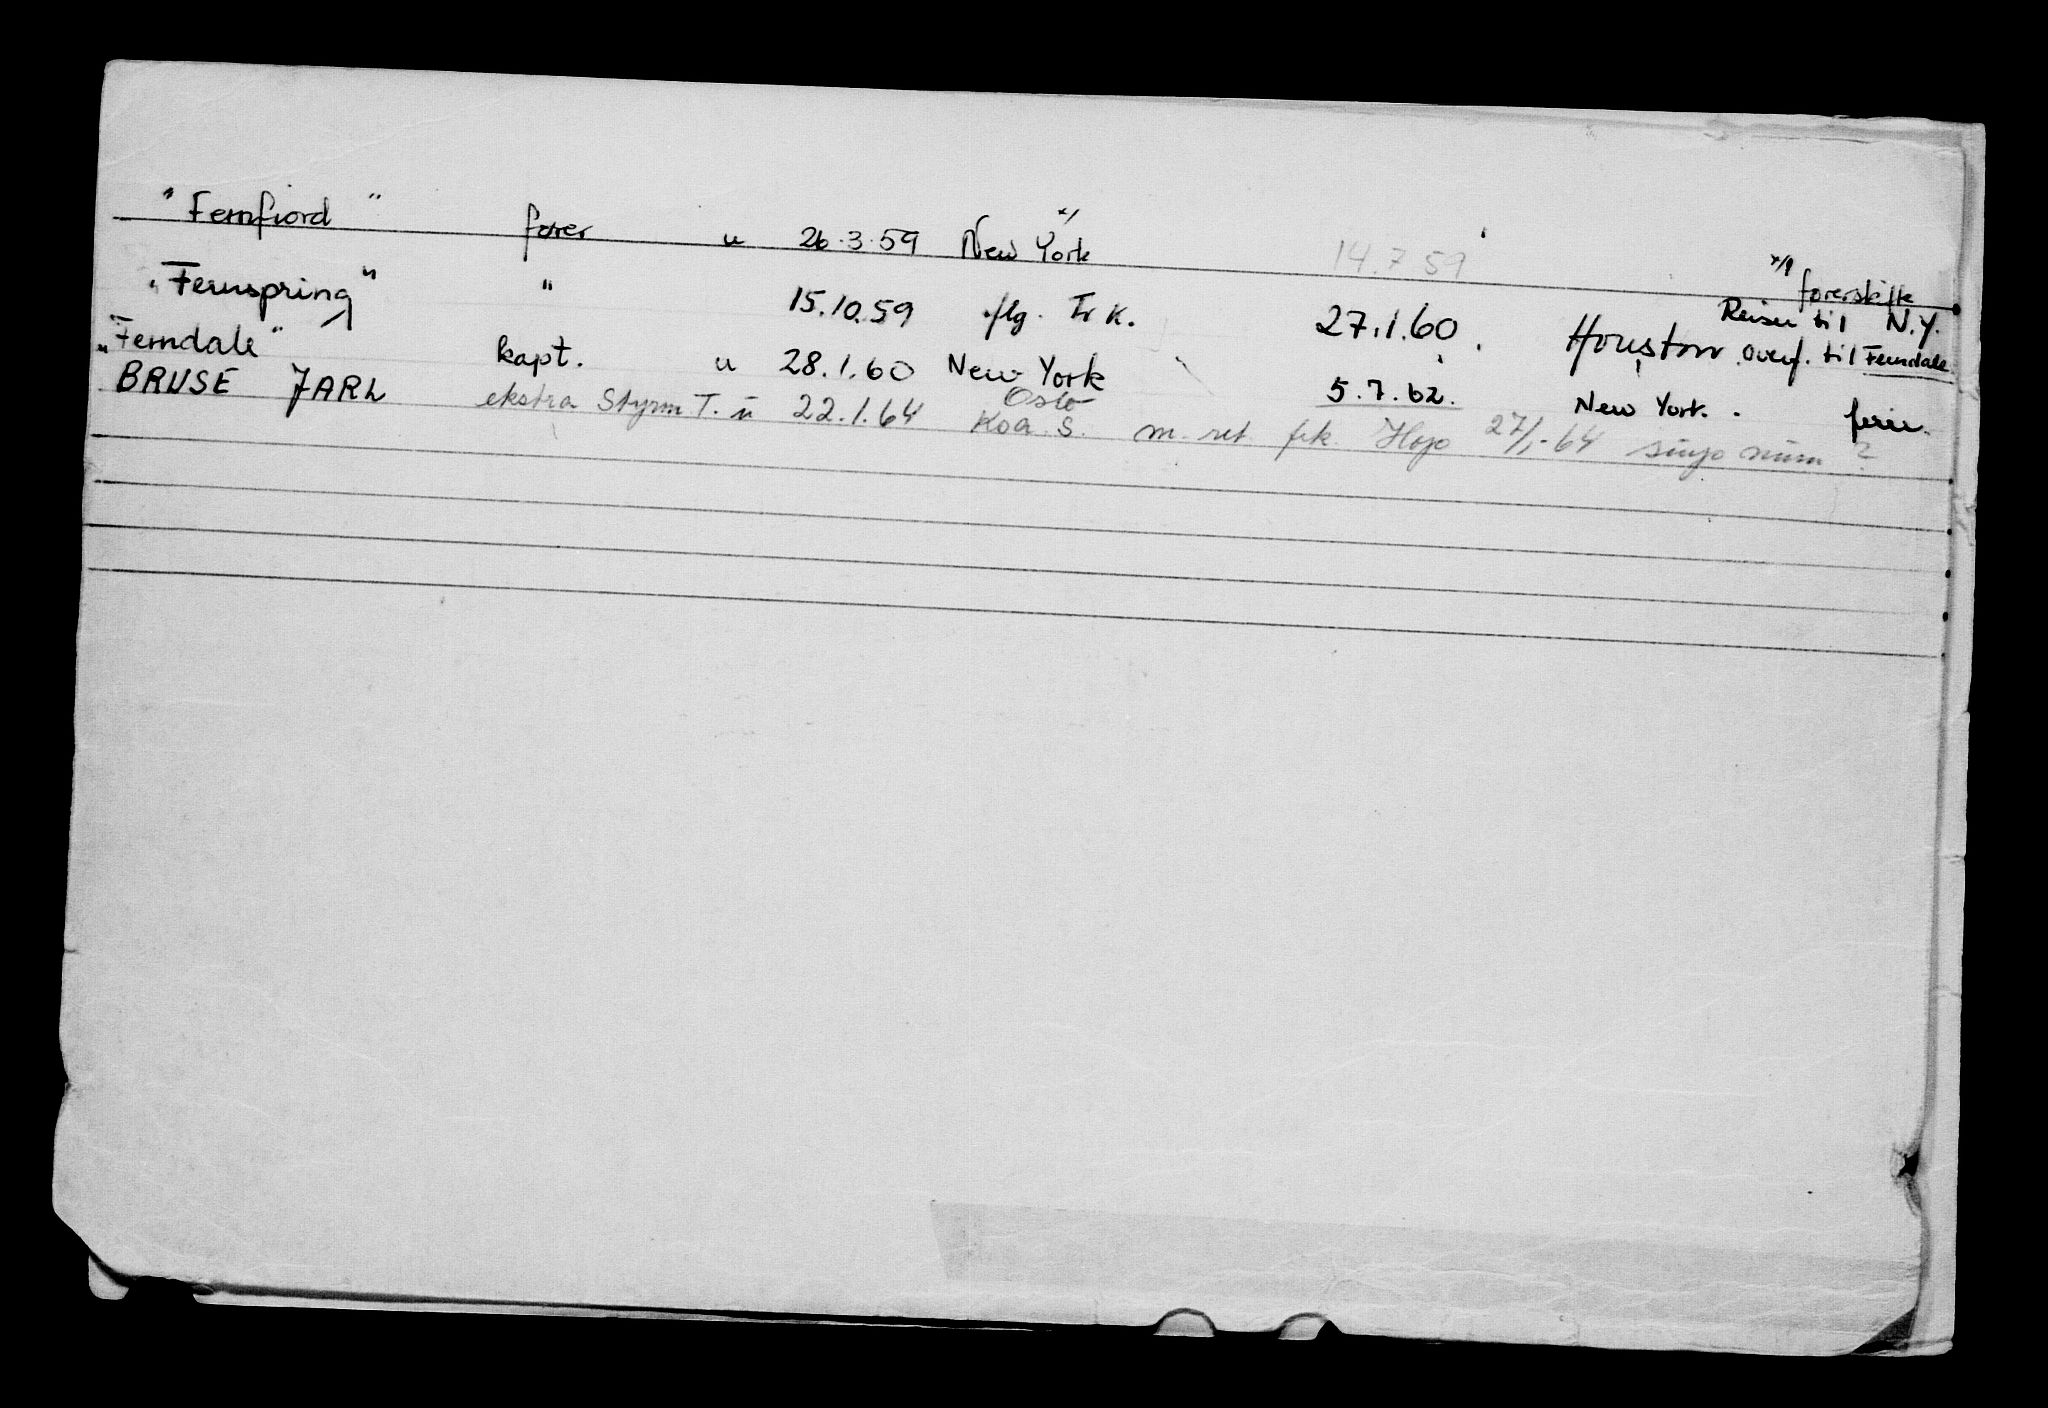 "Fernfiord" fører u 26.3.59 New York x/ 14.7.59 x/ førerskifte
"Fernspring" " 15.10.59 flg. Tr K. 27.1.60. Houston Reiser til N.Y. overf. til Ferndale
"Ferndale" kapt. u 28.1.60 New York 5.7.62. New York. ferie.
BRUSE JARL ekstra Styrm T. u 22.1.64 Oslo Koa S. m. ret. frk. 27/1-64